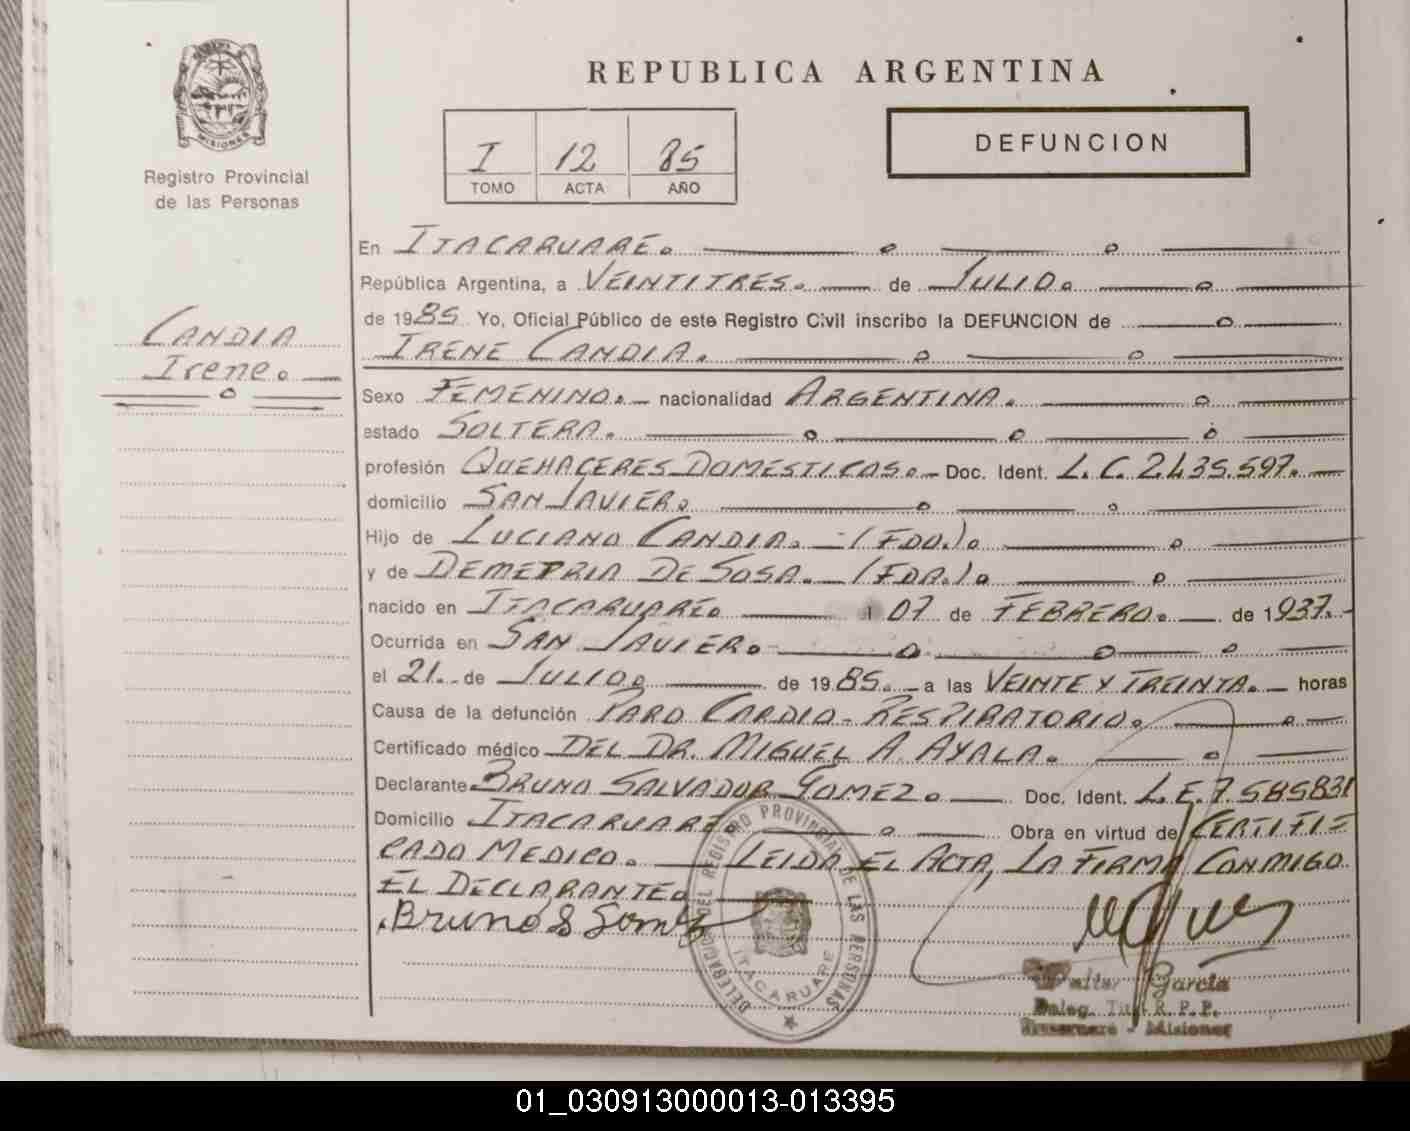 REPUBLICA ARGENTINA
MISIONES
Registro Provincial
de las Personas
I 12 85
TOMO ACTA AÑO
DEFUNCION
CANDIA
Irene.
En ITACARUARÉ.
República Argentina, a VEINTITRES. de JULIO.
de 1985 Yo, Oficial Público de este Registro Civil inscribo la DEFUNCION de
IRENE CANDIA.
Sexo FEMENINO. nacionalidad ARGENTINA.
estado SOLTERA.
profesión QUEHACERES DOMESTICOS. Doc. Ident. L.C. 2.435.597.
domicilio SAN JAVIER.
Hijo de LUCIANO CANDIA. (FDO.).
y de DEMETRIA DE SOSA. (FDA.).
nacido en ITACARUARÉ. l 07 de FEBRERO. de 1937.
Ocurrida en SAN JAVIER.
el 21. de JULIO. de 1985. a las VEINTE Y TREINTA. horas
Causa de la defunción PARO CARDIO-RESPIRATORIO.
Certificado médico DEL DR. MIGUEL A. AYALA.
Declarante BRUNO SALVADOR GOMEZ. Doc. Ident. L.E. 7.585831
Domicilio ITACARUARÉ. Obra en virtud de CERTIFI=
CADO MEDICO. LEIDA EL ACTA, LA FIRMA CONMIGO
EL DECLARANTE.
Bruno S Gomez
DELEGACION DEL REGISTRO PROVINCIAL DE LAS PERSONAS
ITACARUARE
Walter García
Deleg. Tit. R.P.P.
Itacaruare - Misiones
01_030913000013-013395